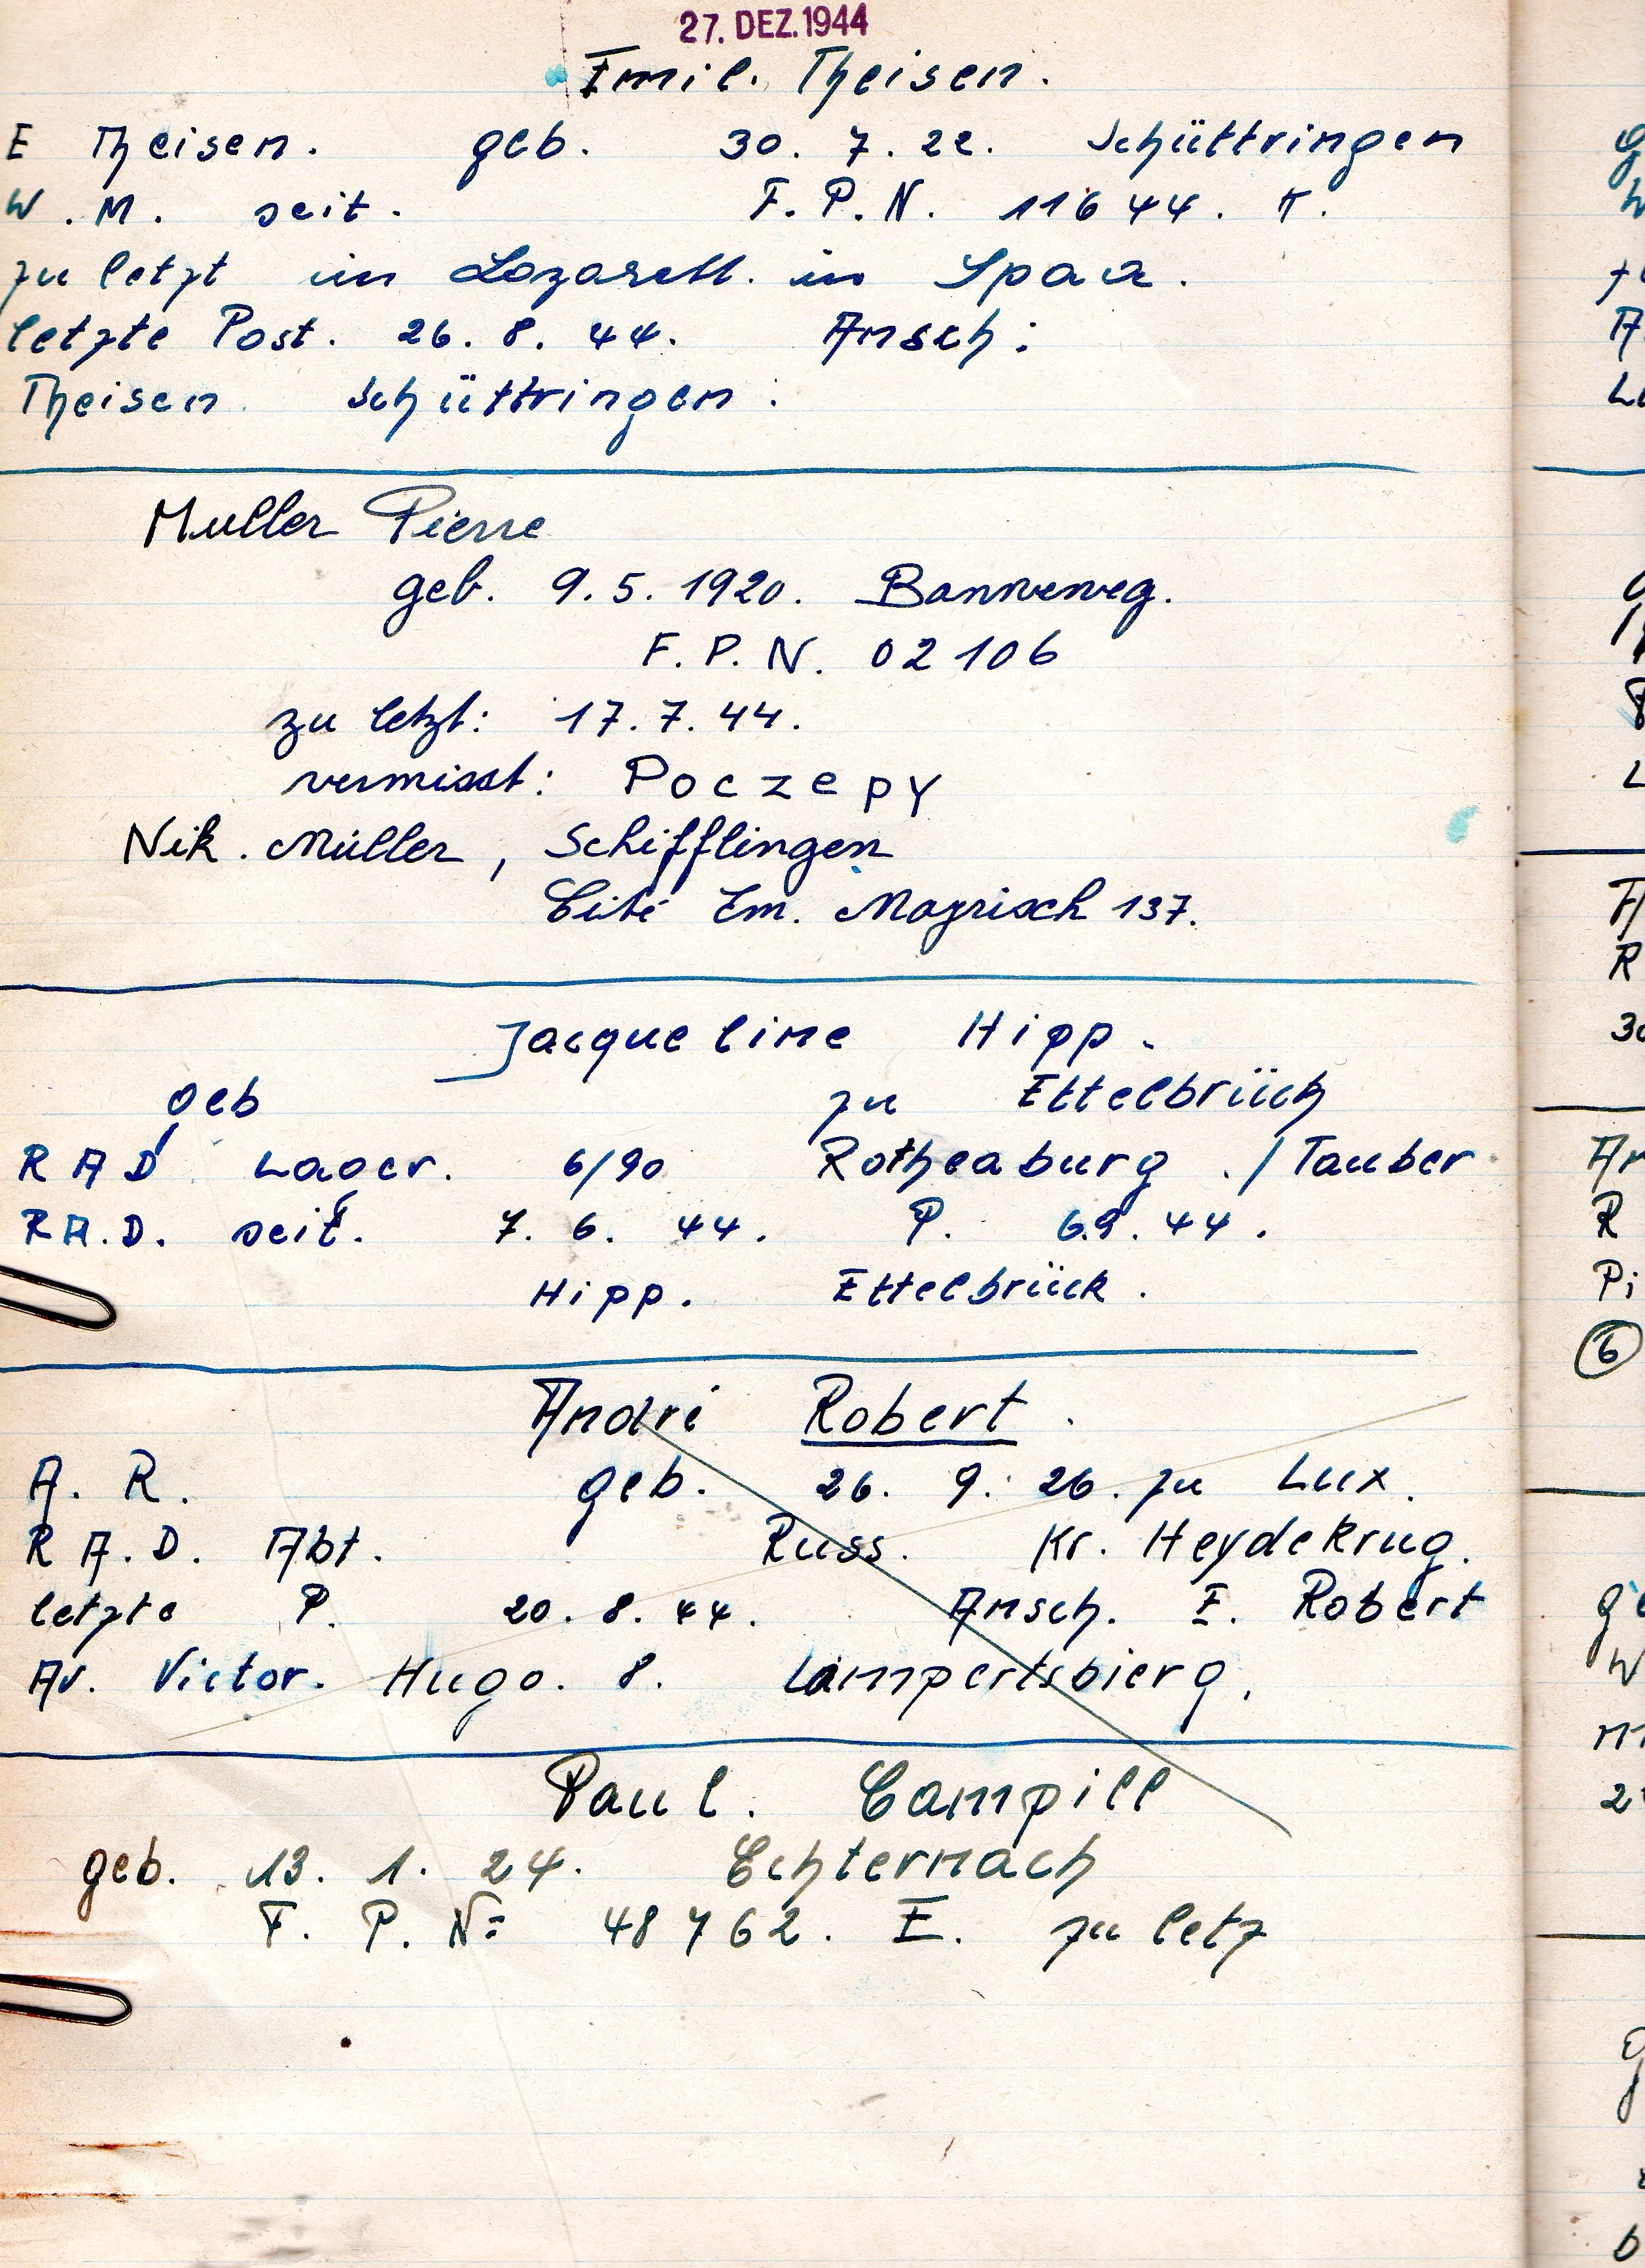 27. DEZ. 1944
Emil. Theisen.
E Theisen. geb. 30. 7. 22. Schüttringen
W. M. seit. F. P. N. 11644. T.
zu letzt im Lazarett. in Spaa.
letzte Post. 26. 8. 44. Ansch:
Theisen Schüttringen:
Muller Pierre
geb. 9. 5. 1920. Bonneweg.
F. P. N. 02106
zu letzt: 17. 7. 44.
vermisst: Poczepy
Nik. Müller, Schifflingen
Cité Em. Mayrisch 137.
Jacqueline Hipp.
geb zu Ettelbrück
RAD Lager. 6/90 Rothenburg ./Tauber
RA.D. seit. 7. 6. 44. P. 6.9. 44.
Hipp. Ettelbrück.
André Robert.
A. R. geb. 26. 9. 26. zu Lux.
R A. D. Abt. Russ. Kr. Heydekrug.
letzte P. 20. 8. 44. Ansch. E. Robert
Av. Victor. Hugo. 8. Limpertsbierg.
Paul. Campill
geb. 13. 1. 24. Echternach
F. P. N: 48762. E. zu letz